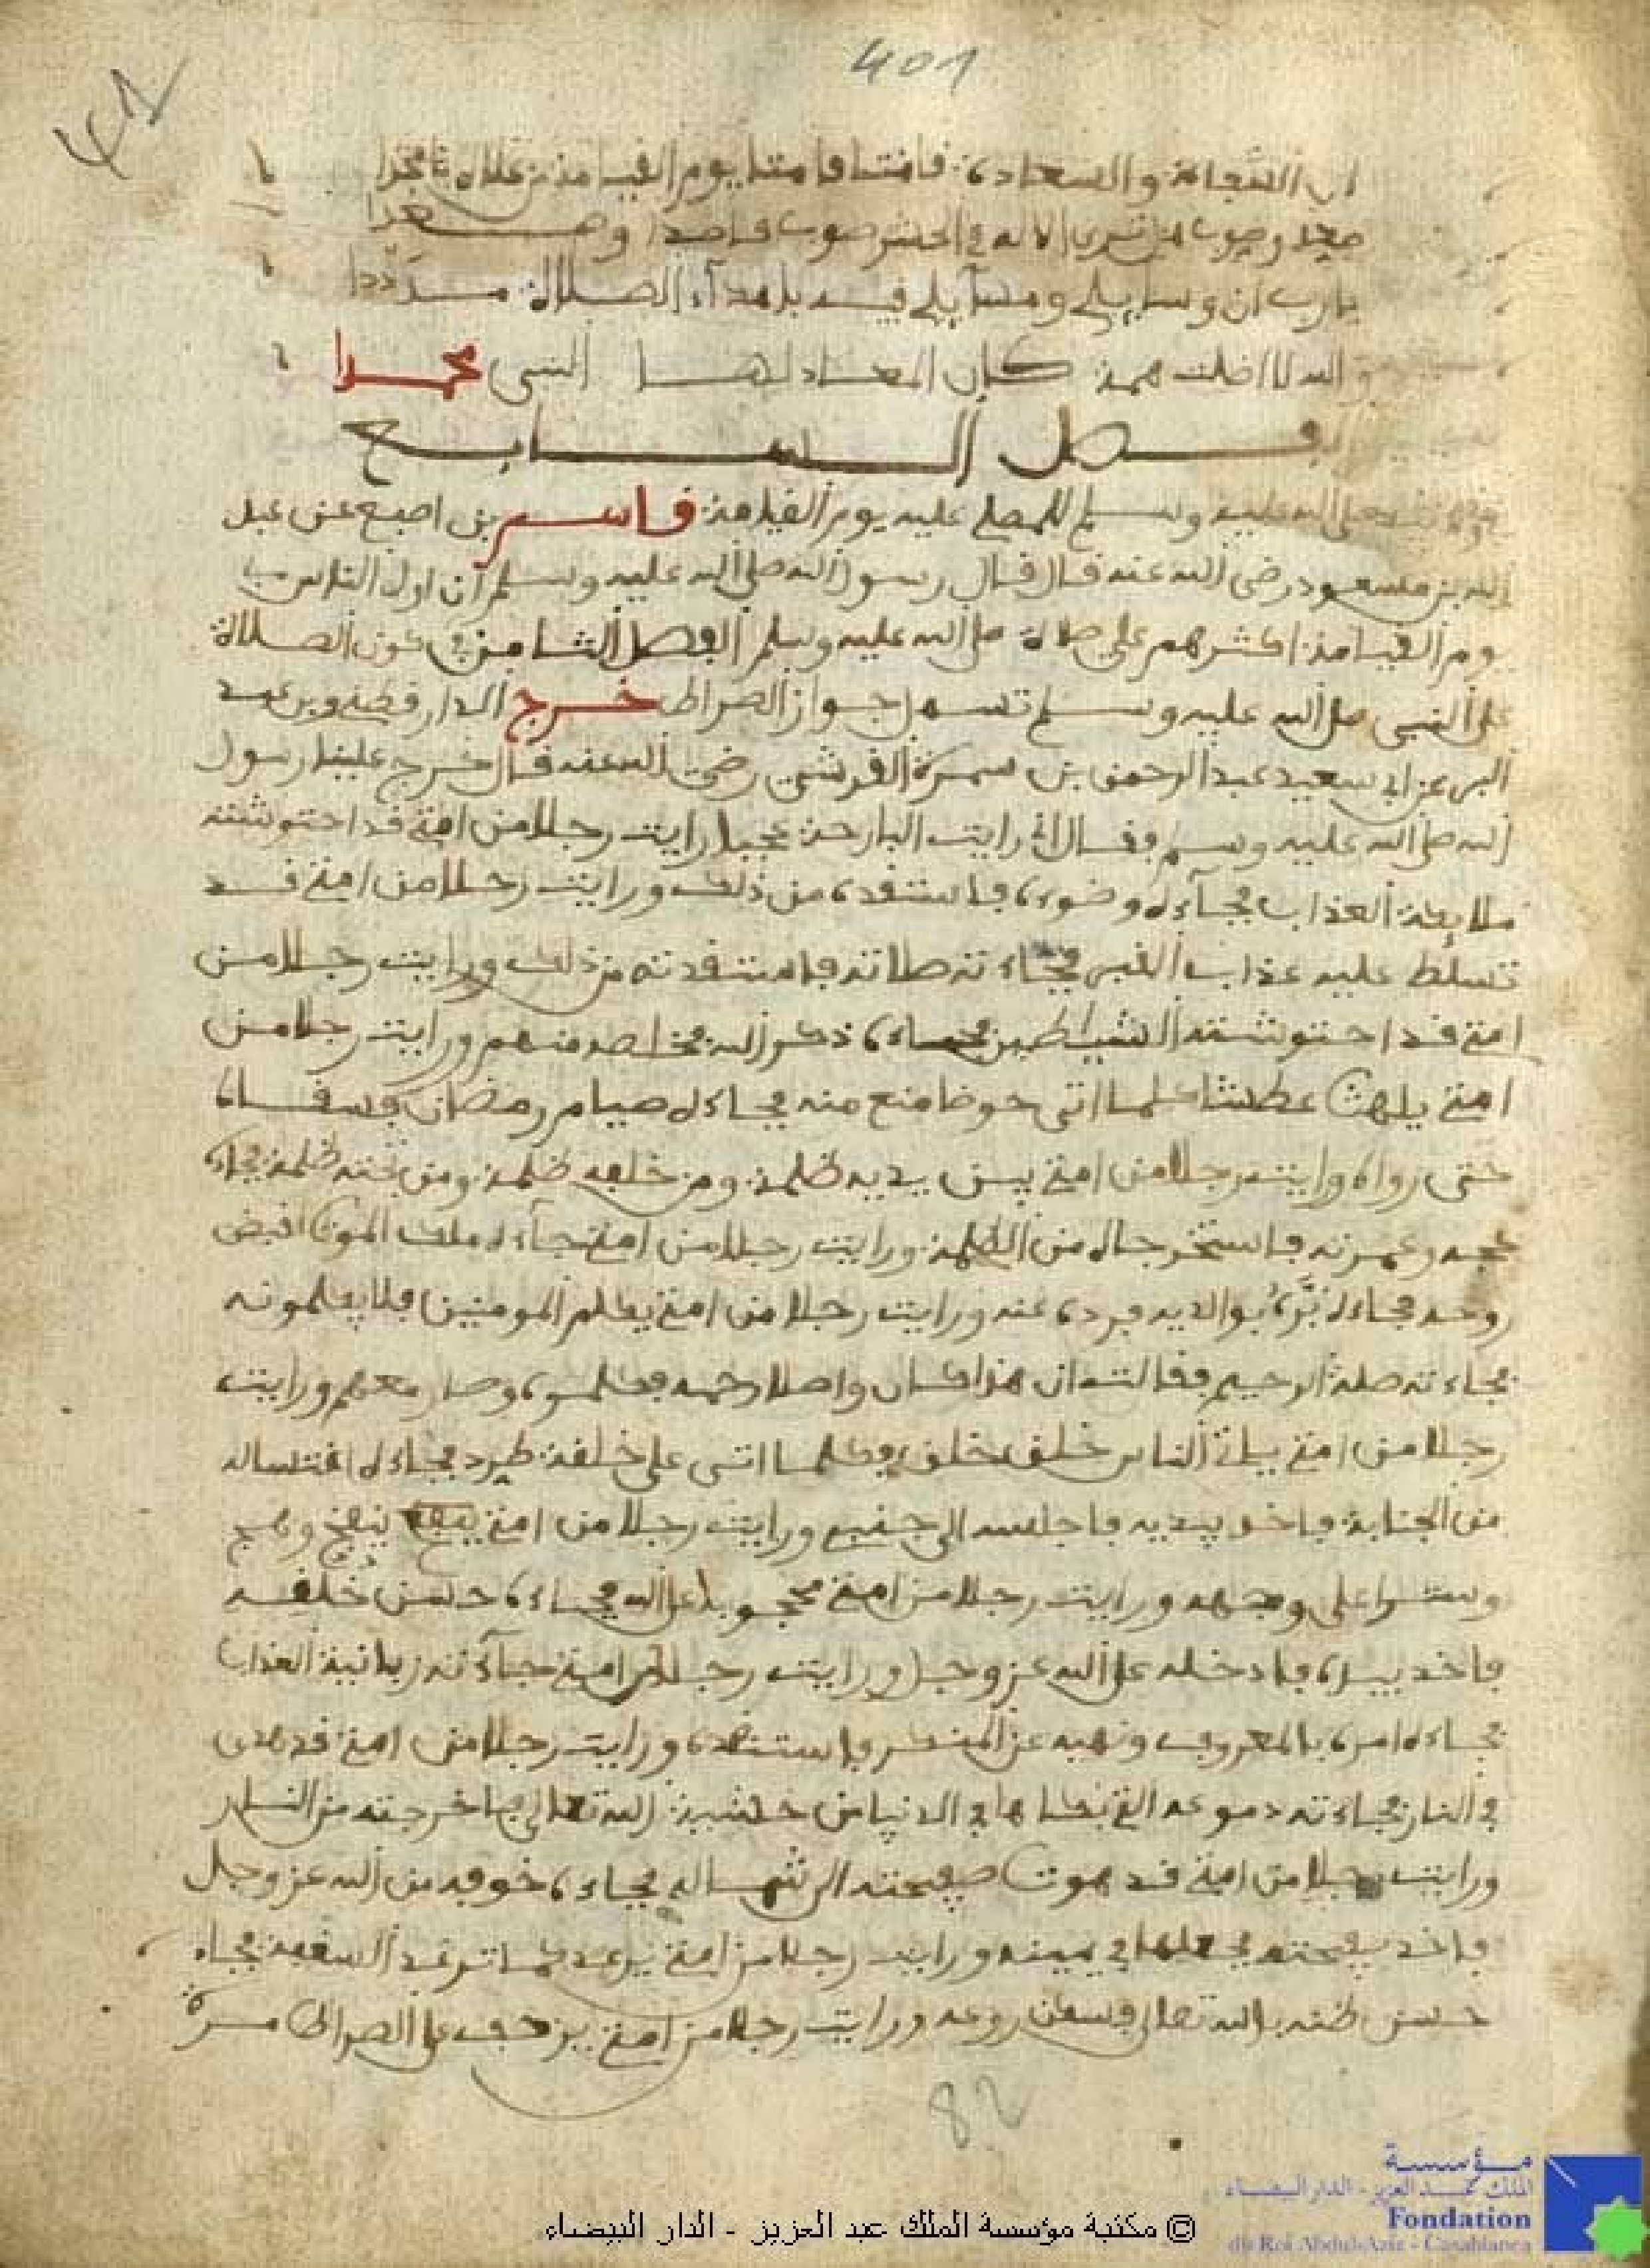 401
ان الشفاعة والسعادة فانتما فا متنا يوم القيامة من علاه تامجدا
صوب من ترى الاله في الحشر صوب قاصدا وصعدا
يارب ان وسايلي ومسآيلي فيه بلهدآء الصلاة مسرددا
والله لااخاف همة كان المعاد لها النبى محمدا
الفصل السابع
صلى الله عليه وسلم للمصلي عليه يوم القيامة قاسم بن اصبع عن عبد
الله بن مسعود رضى الله عنه قال قال رسول الله صلى الله عليه وسلم ان اولى الناس بي
يوم القيامة اكثرهم علي صلاة صلى الله عليه وسلم الفصل الثامن في كون الصلاة
على النبى صلى الله عليه وسلم تسهل جواز الصراط خرج الدارقطني وبن عبد
البر عن ابي سعيد عبد الرحمن بن سمرة القرشي رضى الله عنه قال خرج علينا رسول
الله صلى الله عليه وسلم فقال اني رايت البارحة عجبا رايت رجلا من امتي قد احتوشته
ملايكة العذاب فجآءه وضوءه فاستنقده من ذلك ورايت رجلا من امتي قد
تسلط عليه عذاب القبر فجاءته صلاته فاستنقدته من ذلك ورايت رجلا من
امتي قد احتوشته الشياطين فجاءه ذكر الله فخلصه منهم ورايت رجلا من
امتي يلهث عطشا كلما اتى حوضا منع منه فجاءه صيام رمضان فسقاه
حتى رواه ورايت رجلا من امتي بين يديه ظلمة ومن خلفه ظلمة ومن تحته ظلمة فجاءه
حجه وعمرته فاستخرجاه من الظلمة ورايت رجلا من امتي جآءه ملك الموت لقبض
روحه فجاءه بره بوالديه فرده عنه ورايت رجلا من امتي يكلم المومنين فلا يكلمونه
فجاءته صلة الرحيم فقالت ان هذا كان واصلا رحمه فكلموه وصار معهم ورايت
رجلا من امتي ياتي الناس حلق حلق فكلما اتى على حلقة طرد فجاءه اغتساله
من الجنابة فاخد بيديه فاجلسه الى جنبي ورايت رجلا من امتي ينفخ وهج
وسترا على وجهه ورايت رجلا من امتي محجوبا عن الله فجاءه حسن خلقه
فاخد بيده فادخله على الله عز وجل ورايت رجلا من امتي جآءته زبانية العذاب
فجاءه امره بالمعروف ونهيه عن المنكر فاستنقده ورايت رجلا من امتي قد هوى
في النار فجاءته دموعه التي بكاها في الدنيا من خشية الله تعالى فاخرجته من النار
ورايت رجلا من امتي قد هوت صحيفته الى شماله فجاءه خوفه من الله عز وجل
فاخد صحيفته فجعلها في يمينه ورايت رجلا من امتي يرعد كما ترعد السعفة فجاءه
حسن ظنه بالله تعالى فسكن روعه ورايت رجلا من امتي يزحف على الصراط مرة
82
مؤسسة
الملك عبد العزيز - الدار البيضاء
Fondation
du Roi Abdul-Aziz - Casablanca
© مكتبة مؤسسة الملك عبد العزيز - الدار البيضاء